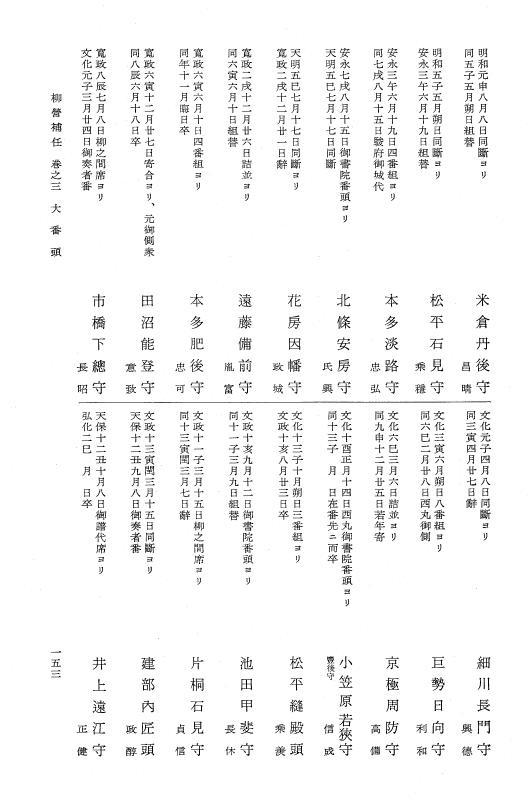 明和元申八月八日同斷ヨリ
同五子五月朔日組替
米倉丹後守
昌晴
明和五子五月朔日同斷ヨリ
安永三午六月十九日組替
松平石見守
乘穩
安永三午六月十九日四番組ヨリ
同七戌八月十五日駿府御城代
本多淡路守
忠弘
安永七戌八月十五日御書院番頭ヨリ
天明五巳七月十七日同斷
北條安房守
氏興
天明五巳七月十七日同斷ヨリ
寛政二戌十二月廿一日辭
花房因幡守
政城
寛政二戌十二月廿六日詰並ヨリ
同六寅六月十日組替
遠藤備前守
胤富
寛政六寅六月十日四番組ヨリ
同年十一月晦日卒
本多肥後守
忠可
寛政六寅十二月廿七日寄合ヨリ、元御側衆
同八辰六月十八日卒
田沼能登守
意致
寛政八辰七月八日柳之間席ヨリ
文化元子三月廿四日御奏者番
市橋下總守
長昭
文化元子四月八日同斷ヨリ
同三寅四月廿七日辭
細川長門守
興德
文化三寅六月朔日八番組ヨリ
同六巳二月廿八日西丸御側
巨勢日向守
利和
文化六巳三月六日詰並ヨリ
同九申十二月廿五日若年寄
京極周防守
高備
文化十酉正月十四日西丸御書院番頭ヨリ
同十三子 月 日在番先ニ而卒
小笠原若狹守
豐後守
信成
文化十三子十月朔日三番組ヨリ
文政十亥八月廿三日卒
松平縫殿頭
乘羨
文政十亥九月十二日御書院番頭ヨリ
同十一子三月九日組替
池田甲斐守
長休
文政十一子三月十五日柳之間席ヨリ
同十三寅閏三月七日辭
片桐石見守
貞信
文政十三寅閏三月十五日同斷ヨリ
天保十二丑九月八日御奏者番
建部內匠頭
政醇
天保十二丑十月八日御譜代席ヨリ
弘化二巳 月 日卒
井上遠江守
正健
柳營補任 卷之三 大番頭
一五三